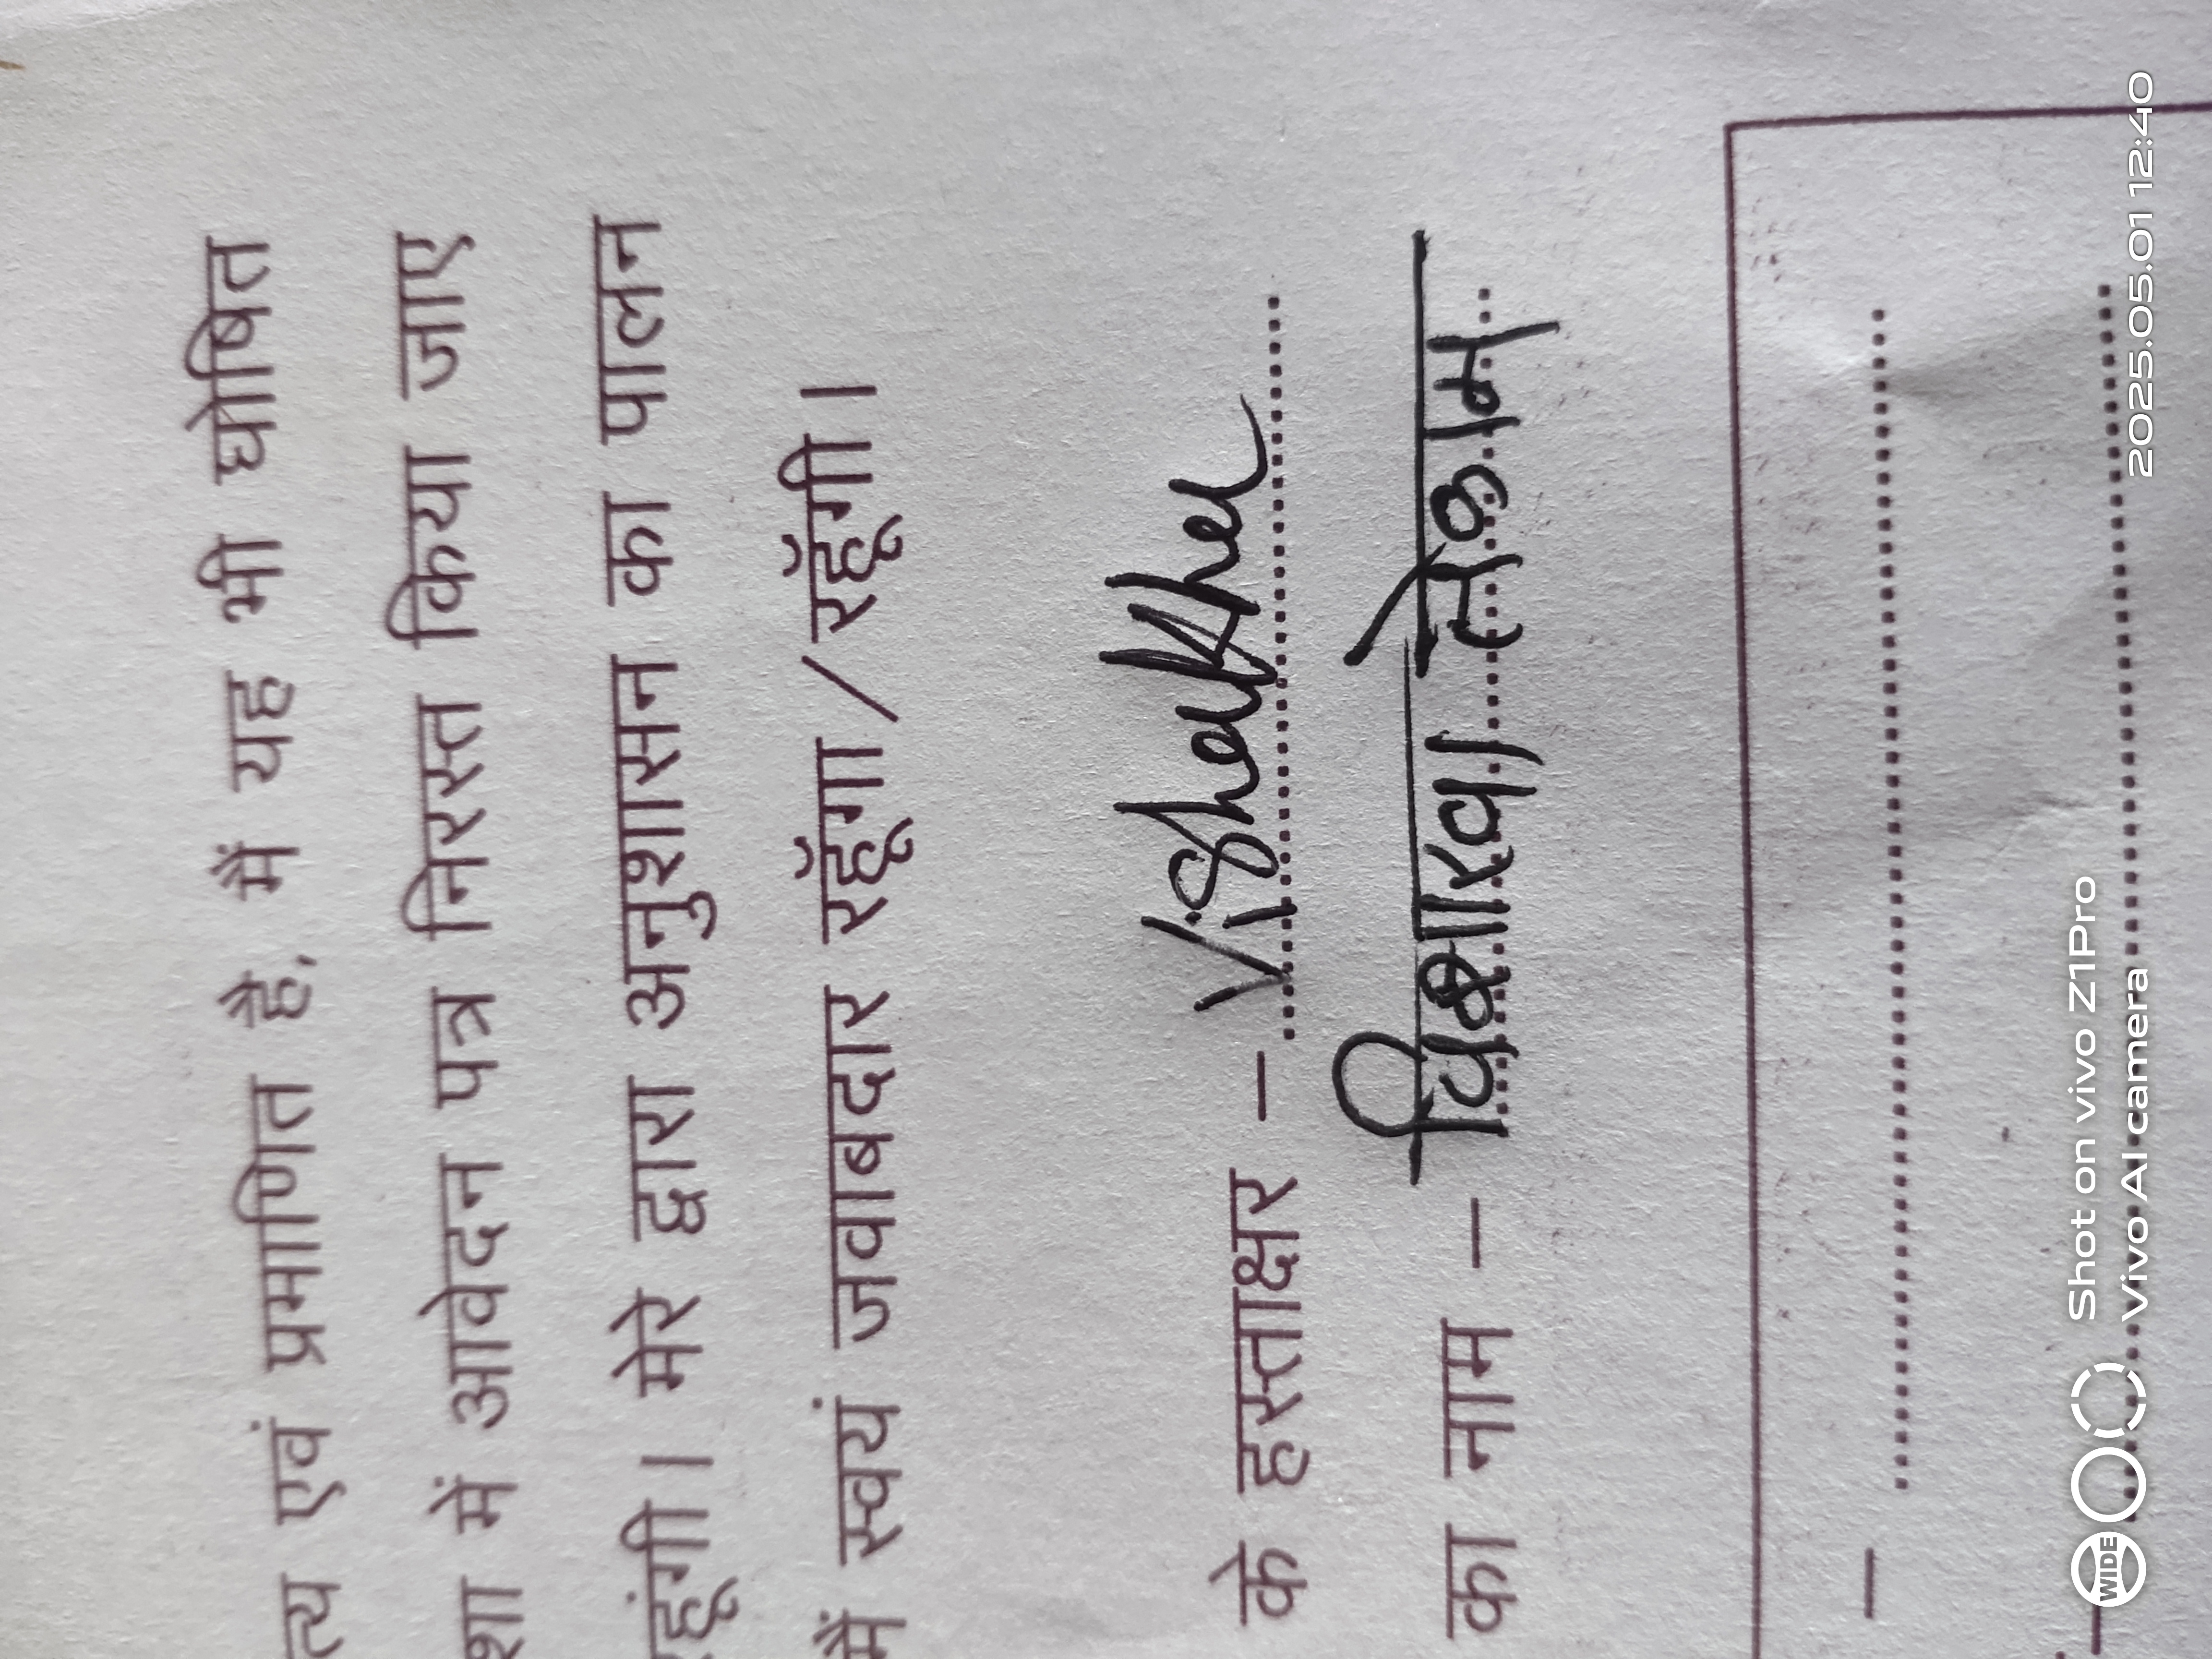 त्य एवं प्रमाणित है, मैं यह भी घोषित
शा में आवेदन पत्र निरस्त किया जाए
हूंगी। मेरे द्वारा अनुशासन का पालन
मैं स्वयं जवाबदार रहूँगा/रहूँगी।
के हस्ताक्षर - Vishakha
का नाम - विशाखा तेकाम
Shot on vivo Z1Pro
Vivo AI camera
2025.05.01 12:40
WIDE